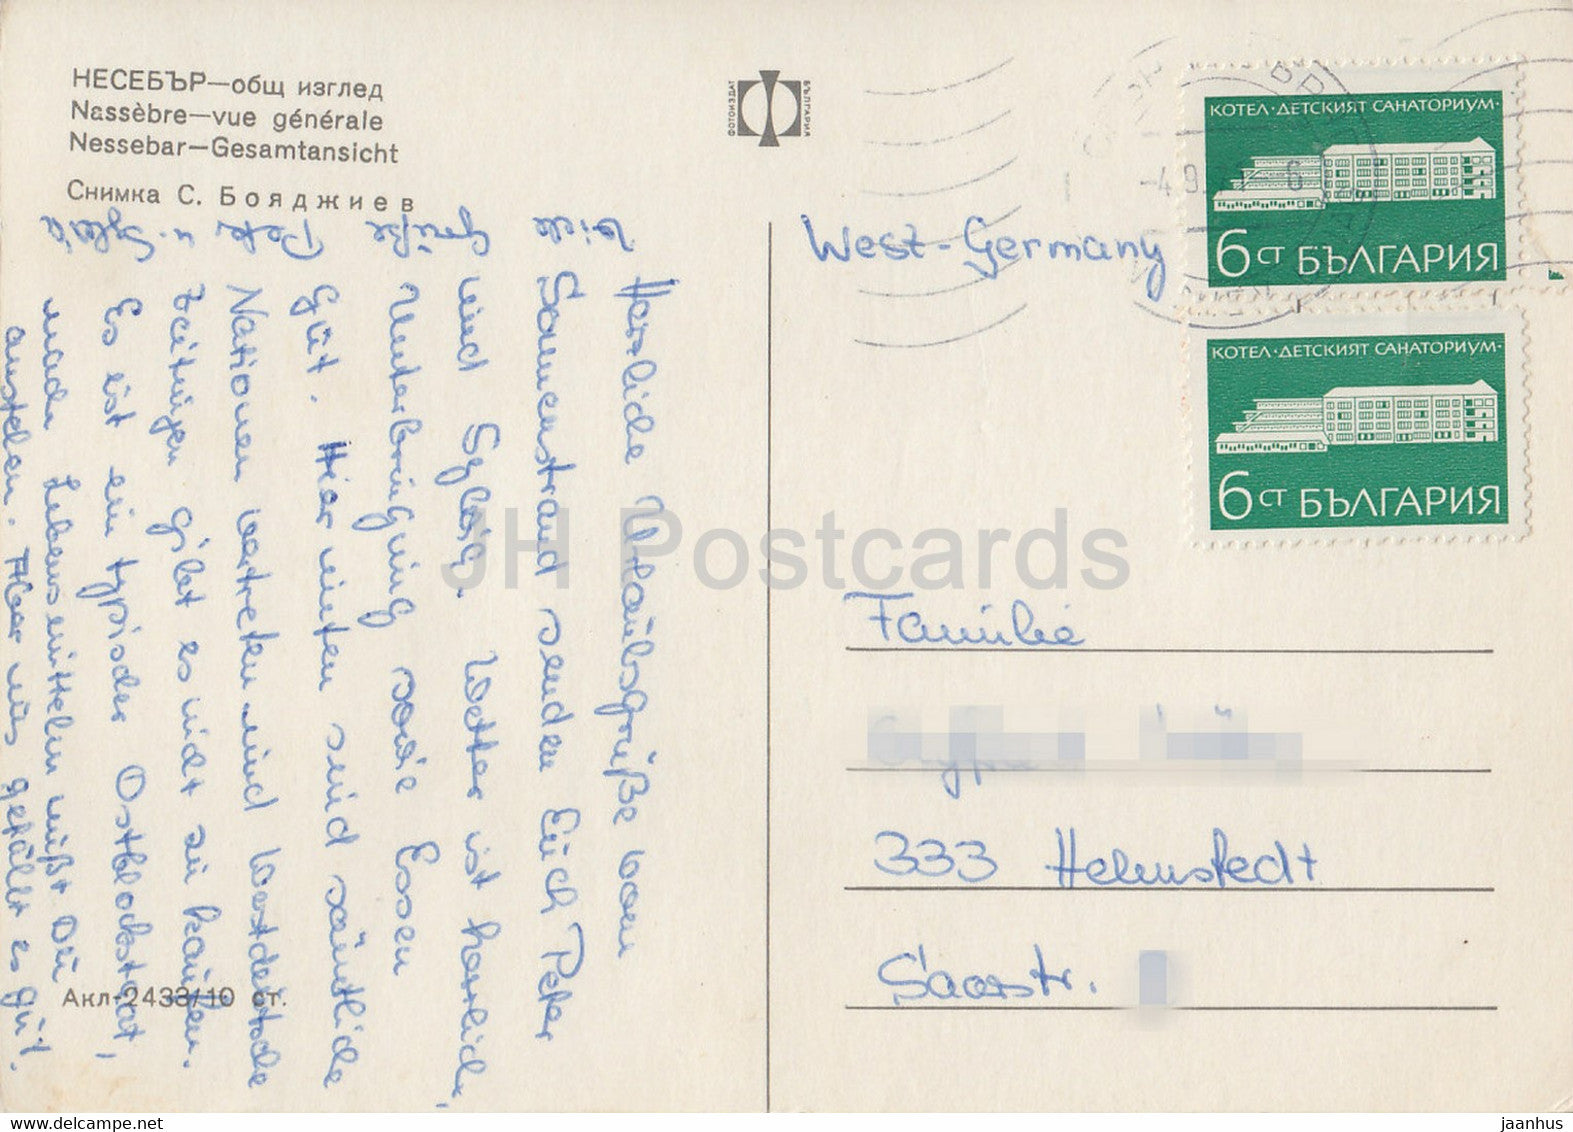 НЕСЕБЪР—общ изглед
Nassèbre—vue générale
Nessebar—Gesamtansicht
Снимка С. Бояджиев
ФОТОИЗДАТ
БЪЛГАРИЯ
КОТЕЛ·ДЕТСКИЯТ САНАТОРИУМ·
6 СТ БЪЛГАРИЯ
КОТЕЛ·ДЕТСКИЯТ САНАТОРИУМ·
6 СТ БЪЛГАРИЯ
-4.9.
West-Germany
Herzliche Urlaubsgrüße vom
Sonnenstrand senden Euch Peter
und Sylvia. Wetter ist herrlich,
Unterbringung sowie Essen
Gut. Hier unten sind sämtliche
Nationen vertreten und Westdeutsche
Zeitungen gibt es nicht zu kaufen.
Es ist ein typischer Ostblockstaat,
nach Lebensmitteln mußt Du
anstehen. Aber uns gefällt es gut.
Viele
Grüße
Peter
u. Sylvia
Familie
333 Helmstedt
Saarstr.
Акл-2433/10 ст.
JH Postcards
www.delcampe.net
jaanhus